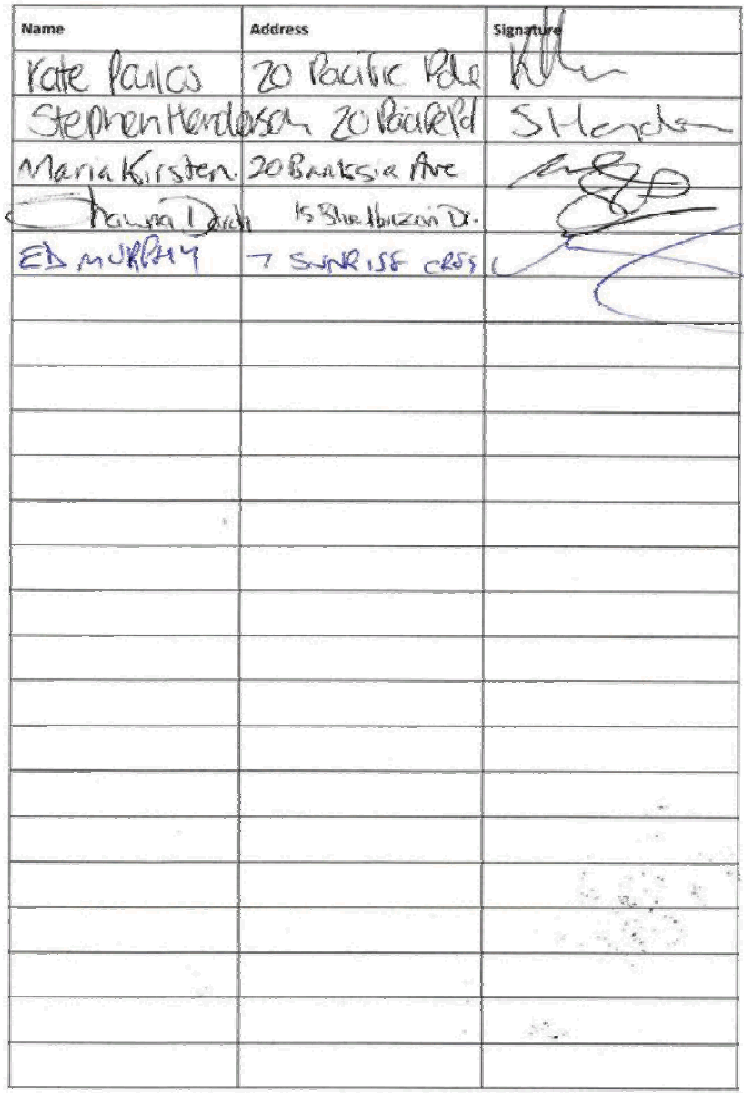 Name Address Signature
Kate Paulos 20 Pacific Pde
Stephen Henderson 20 Pacific Pd S Henderson
Maria Kirsten 20 Banksia Ave
Shawna Darch 15 Blue Horizon Dr.
ED MURPHY 7 SUNRISE CRES